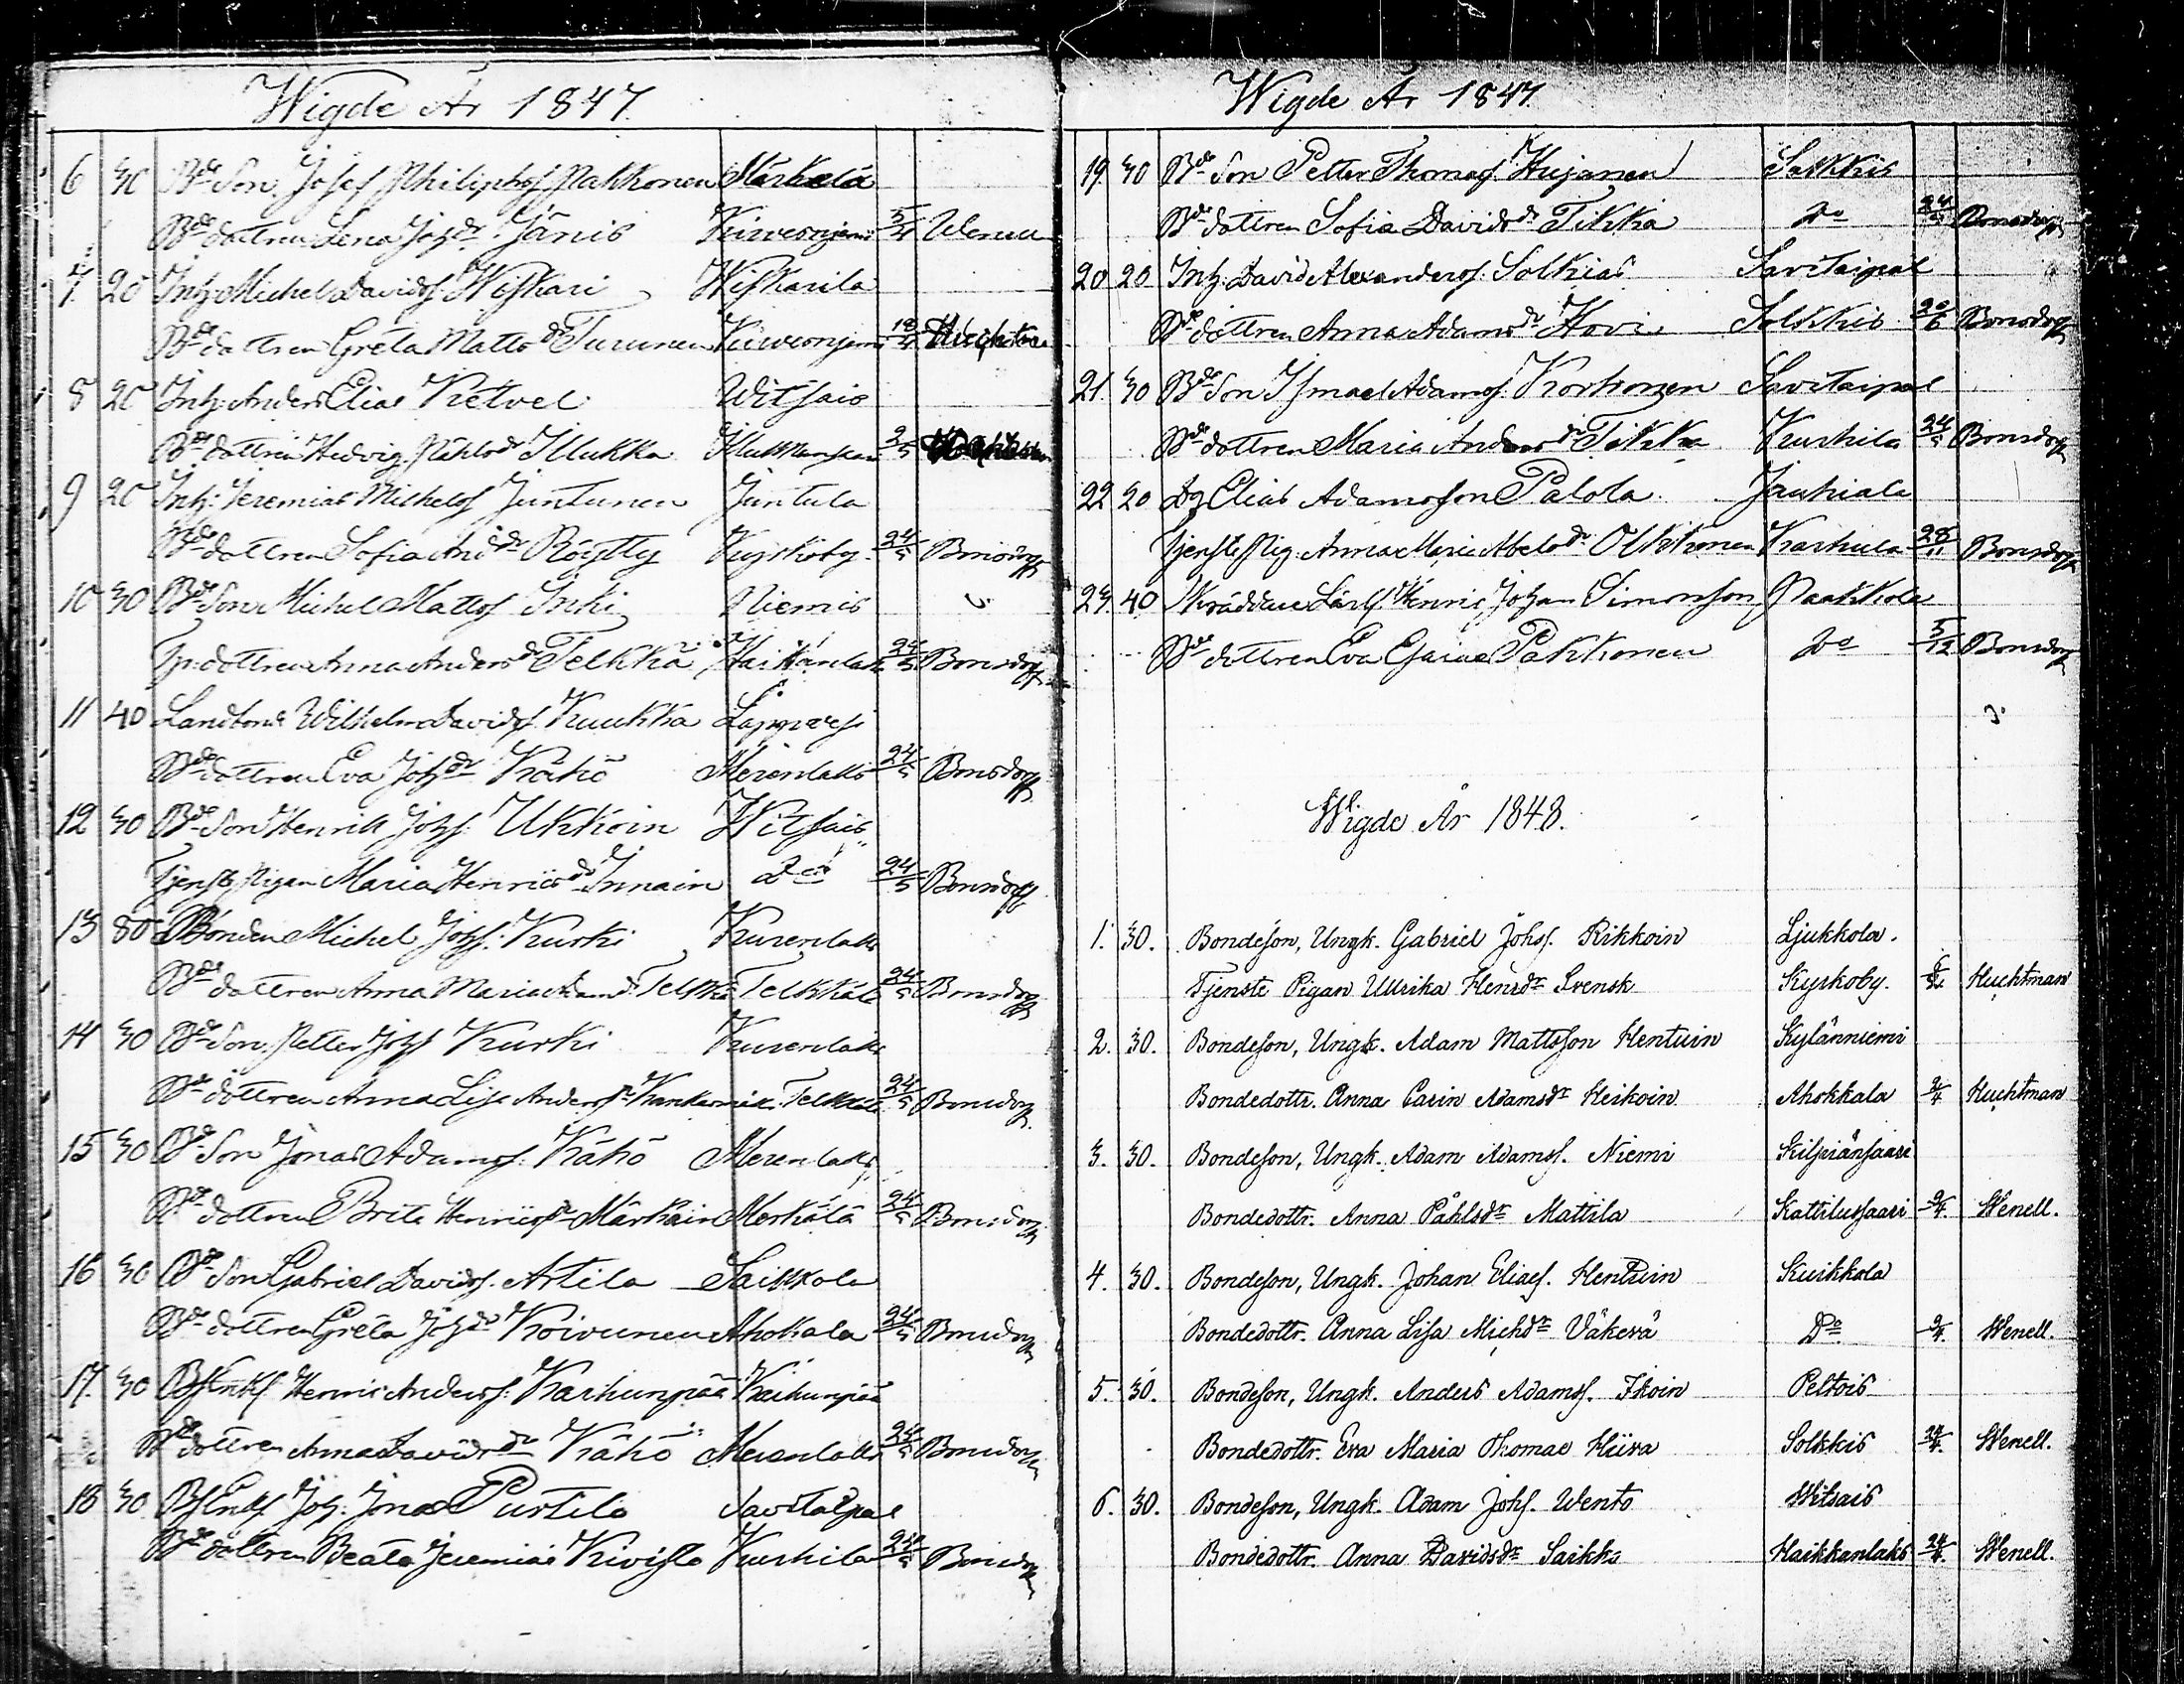 Wigde År 1847.
6 30 Bde Son Josef Philiphs. Pakkonen Märkälä
Bde dottren Lena Johdr Jänis 5/4 Wenell
7. 20 Inh: Michel Davids. Wiskari Wiskarila
Bde dottren Greta Mattsdr Turunen 18/4
8 20 Inh: Anders Elias Ketvel Witsais
Bde dottren Hedvig Påhlsdr Illukka 3/5
9 20 Inh: Jeremias Michels. Juntunen Juntula
Bde dottren Sofia Andsdr Röytty Kyrkoby 24/5 Bonsdorff
10 30 Bde Son Michel Matts. Inki Niemis
dottren Anna Andersdr Telkkä Haikkanlaks 24/5 Bonsdorff
11 40 Landbond. Wilhelm Davids. Kuukka Lappvesi
Bde dottren Eva Johdr Kähö Merenlaks 24/5 Bonsdorff
12 30 Bde Son Henrik Johs: Ukkoin Witsais
Tjenste Pigan Maria Henricsdr Innain Do 24/5 Bonsdorff
13 80 Bonden Michel Johs: Kurki Kurenlaks
Bde dottren Anna Maria Adamsdr Telkkä Telkkälä 24/5 Bonsdorff
14 30 Bde Son Petter Johs Kurki Kurenlaks
Bde dottren Anna Lisa Andersdr Telkkälä 24/5 Bonsdorff
15 30 Bde Son Jonas Adams. Kähö Merenlaks
Bde dottren Brita Henricsdr Märkäin Merkälä 24/5 Bonsdorff
16 30 Bde Son Gabriel Davids. Artila Saikkola
Bde dottren Greta Johdr Koivunen Ahokala 24/5 Bonsdorff
17. 30 Henric Anders. Karhunpää Karhunpää
Bde dottren Anna Davidsdr Kähö Merenlaks 24/5 Bonsdorff
18 30 Joh: Jonas Purtilo Savitaipal
Bde dottren Beata Jeremiäs Kivisto Kurhila 24/5 Bonsdorff
Wigde År 1847.
19. 30 Bde Son Petter Thomas. Hujanen Solkkis
Bde dottren Sofia Davidsdr Tikka Do 24/5 Bonsdorff
20 20 Inh: David Alexanders. Solkias Savitaipal
Bde dottren Anna Adamsdr Hovi Solkkis 20/6 Bonsdorff
21. 30 Bde Son Ismael Adams. Korhonen Savitaipal
Bde dottren Maria Andersdr Tikka Kurhila 24/5 Bonsdorff
22 20 Dg Elias Adamsson Palola Jauhiala
Tjenste Pig. Anna Maria Abelsdr Olkkonen Karhula 28/11 Bonsdorff
23. 40 Skräddare Henric Johan Simonson Paakkola
Bde dottren Eva Esaias Pakkonen Do 5/12 Bonsdorff
Wigde År 1848.
1. 30. Bondeson, Ungk. Gabriel Johs. Rikkoin Ljukkola.
Tjenste Pigan Ullrika Henrdr Svensk Kyrkoby. Huchtman
2. 30. Bondeson, Ungk. Adam Mattsson Hentuin Kylänniemi
Bondedottr. Anna Carin Adamsdr Heikoin Ahokkala 2/4 Huchtman
3. 30. Bondeson, Ungk. Adam Adams. Niemi Kilpiänsaari
Bondedottr. Anna Påhlsdr Mattila Kattilussaari 9/4. Wenell.
4. 30. Bondeson, Ungk. Johan Elias. Hentuin Kuikkola
Bondedottr. Anna Lisa Michdr Väkevä Do 9/4. Wenell.
5. 30. Bondeson, Ungk. Anders Adams. Ikoin Peltois
Bondedottr. Eva Maria Thomae Hiiva Solkkis 24/4. Wenell.
6. 30. Bondeson, Ungk. Adam Johs. Wento Witsais
Bondedottr. Anna Davidsdr Saikko Haikkanlaks 24/4. Wenell.